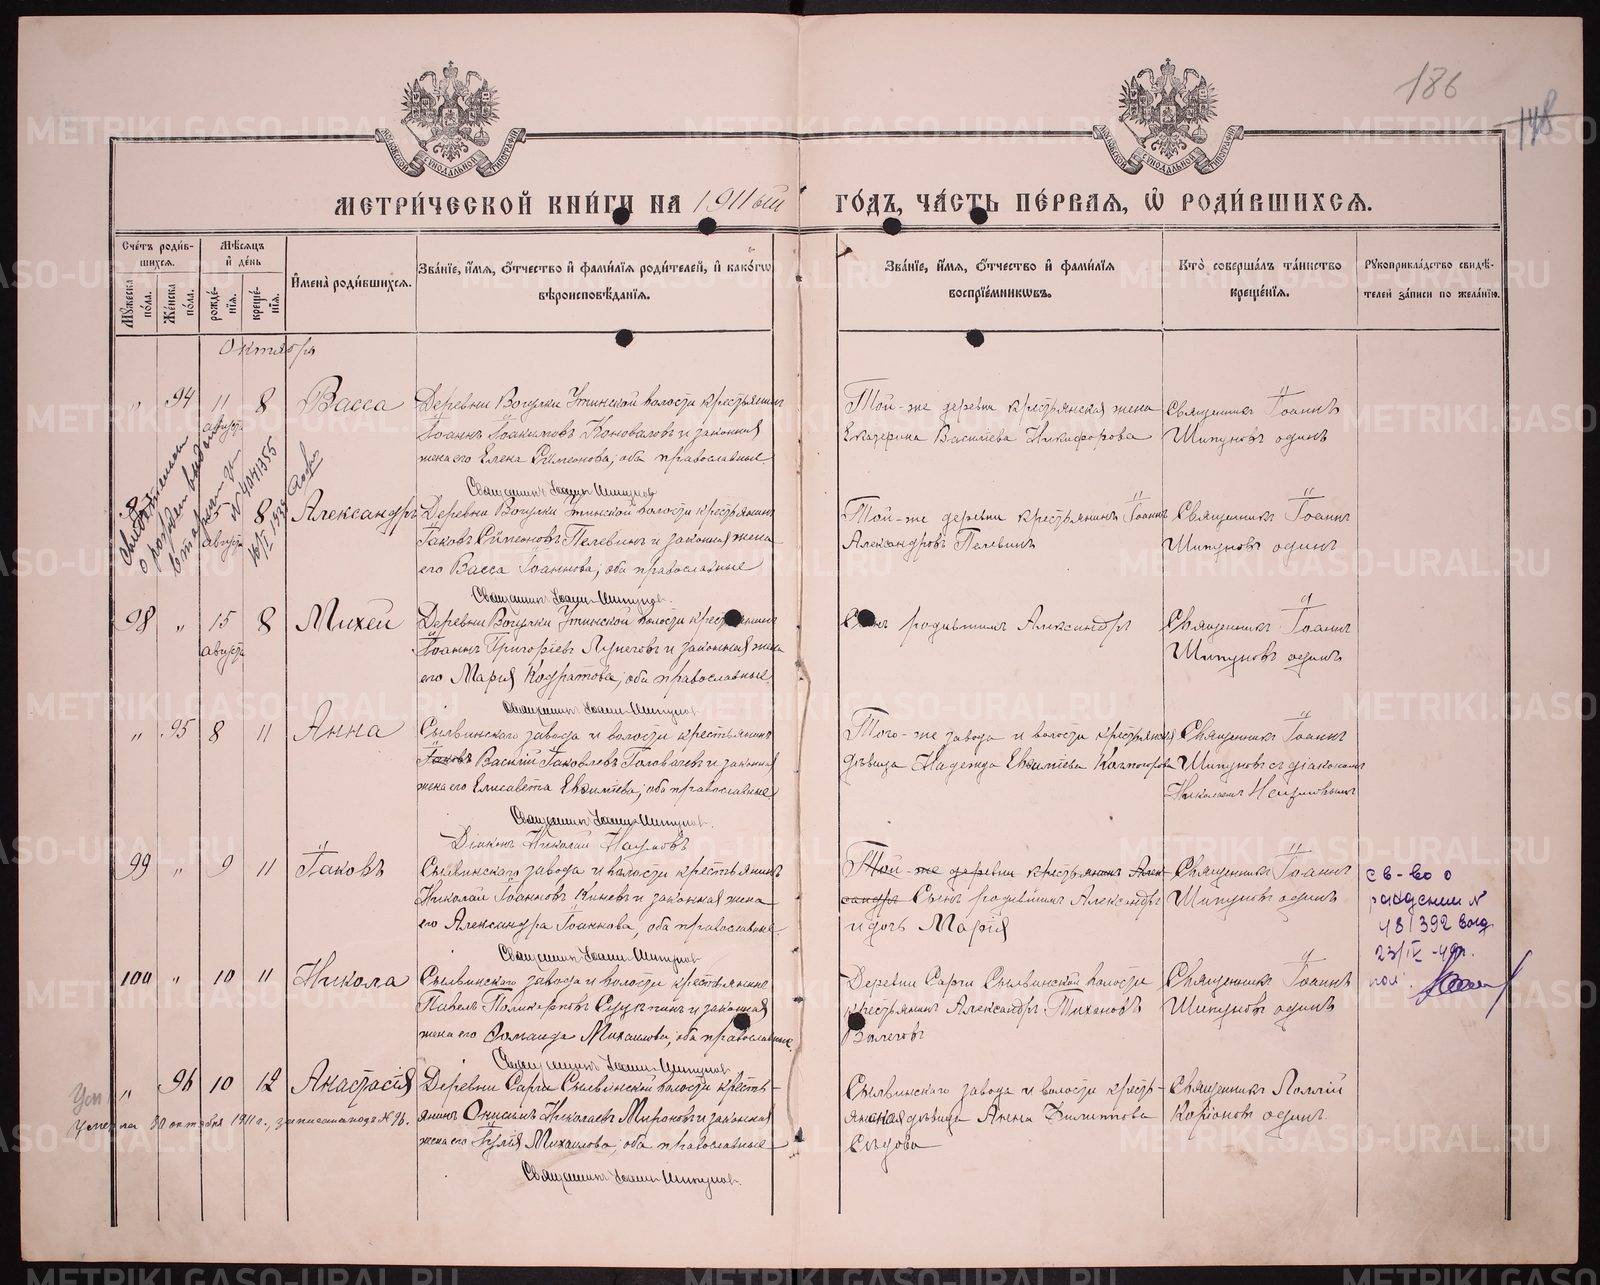 186
148
МОСКОВСКОЙ СѴНОДАЛЬНОЙ ТИПОГРАФІИ
МОСКОВСКОЙ СѴНОДАЛЬНОЙ ТИПОГРАФІИ
МЕТРИ́ЧЕСКОЙ КНИ́ГИ НА 1911ый ГО́ДЪ, ЧА́СТЬ ПЕ́РВАѦ, Ѽ РОДИ́ВШИХСѦ.
Сче́тъ роди́в-
шихсѧ.
Мѣ́сѧцъ
и҆ де́нь
Мꙋ́жеска по́ла.
Же́нска по́ла.
рожде́-
нїѧ.
креще́-
нїѧ.
И҆мена̀ роди́вшихсѧ.
Зва́нїе, и҆́мѧ, ѻ҆́тчество и҆ фами́лїѧ роди́телей, и҆ како́гѡ
вѣроисповѣ́данїѧ.
Зва́нїе, и҆́мѧ, ѻ҆́тчество и҆ фами́лїѧ
воспрїе́мникѡвъ.
Кто̀ соверша́лъ та́инство
креще́нїѧ.
Рꙋкоприкла́дство свидѣ́-
телей за́писи по жела́нїю.
Октябрь
" 94 11 августа 8 Васса
Деревни Вогулки Уткинской волости крестьянинъ
Іоаннъ Іоакимовъ Коноваловъ и законная
жена его Елена Симеонова, оба православные.
Священникъ Іоаннъ Шипуновъ
Той-же деревни крестьянская жена
Екатерина Василіева Никифорова
Священникъ Іоаннъ
Шипуновъ одинъ
Свидѣтельство
о рожден выдано
№ 4041355
16/I 193
5 августа 8 Александръ
Деревни Вогулки Уткинской волости крестьянинъ
Іаковъ Симеоновъ Пелевинъ и законная жена
его Васса Іоаннова, оба православные
Священникъ Іоаннъ Шипуновъ.
Той-же деревни крестьянинъ Іоаннъ
Александровъ Пелевинъ
Священникъ Іоаннъ
Шипуновъ одинъ
98 " 15 августа 8 Михей
Деревни Вогулки Уткинской волости крестьянинъ
Іоаннъ Григоріевъ Лунеговъ и законная жена
его Марія Кодратова, оба православные.
Священникъ Іоаннъ Шипуновъ
Сынъ родившихъ Александръ
Священникъ Іоаннъ
Шипуновъ одинъ
" 95 8 11 Анна
Сылвинскаго завода и волости крестьянинъ
Іаковъ Василій Іаковлевъ Головачевъ и законная
жена его Елисавета Евѳиміева, оба православные
Священникъ Іоаннъ Шипуновъ.
Діаконъ Николай Наумовъ
Того-же завода и волости крестьянская
дѣвица Надежда Евѳиміева
Священникъ Іоаннъ
Шипуновъ съ діакономъ
Николаемъ Наумовымъ
99 " 9 11 Іаковъ
Сылвинскаго завода и волости крестьянинъ
Николай Іоанновъ Киневъ и законная жена
его Александра Іоаннова, оба православные
Священникъ Іоаннъ Шипуновъ
Той-же деревни крестьянинъ Алек-
сандръ Сынъ родившихъ Александръ
и дочь Марія
Священникъ Іоаннъ
Шипуновъ одинъ
св-во о
рождении №
481392 выд
23/IV-49г.
100 " 10 11 Никола
Сылвинскаго завода и волости крестьянинъ
Павелъ Поликарповъ и законная
жена его Домника Михаилова, оба православные.
Священникъ Іоаннъ Шипуновъ
Деревни Сарги Сылвинской волости
крестьянинъ Александръ Тихановъ
Священникъ Іоаннъ
Шипуновъ одинъ
" 96 10 12 Анастасія
Деревни Сарги Сылвинской волости кресть-
янинъ Онисимъ Николаевъ Мироновъ и законная
жена его Іулія Михаилова, оба православные
Священникъ Іоаннъ Шипуновъ.
Умерла 30 октября 1911 г., записана подъ № 76.
Сылвинскаго завода и волости кресть-
янская дѣвица Анна Филиппова
Сѣдова
Священникъ
Каріоновъ одинъ
METRIKI.GASO-URAL.RU